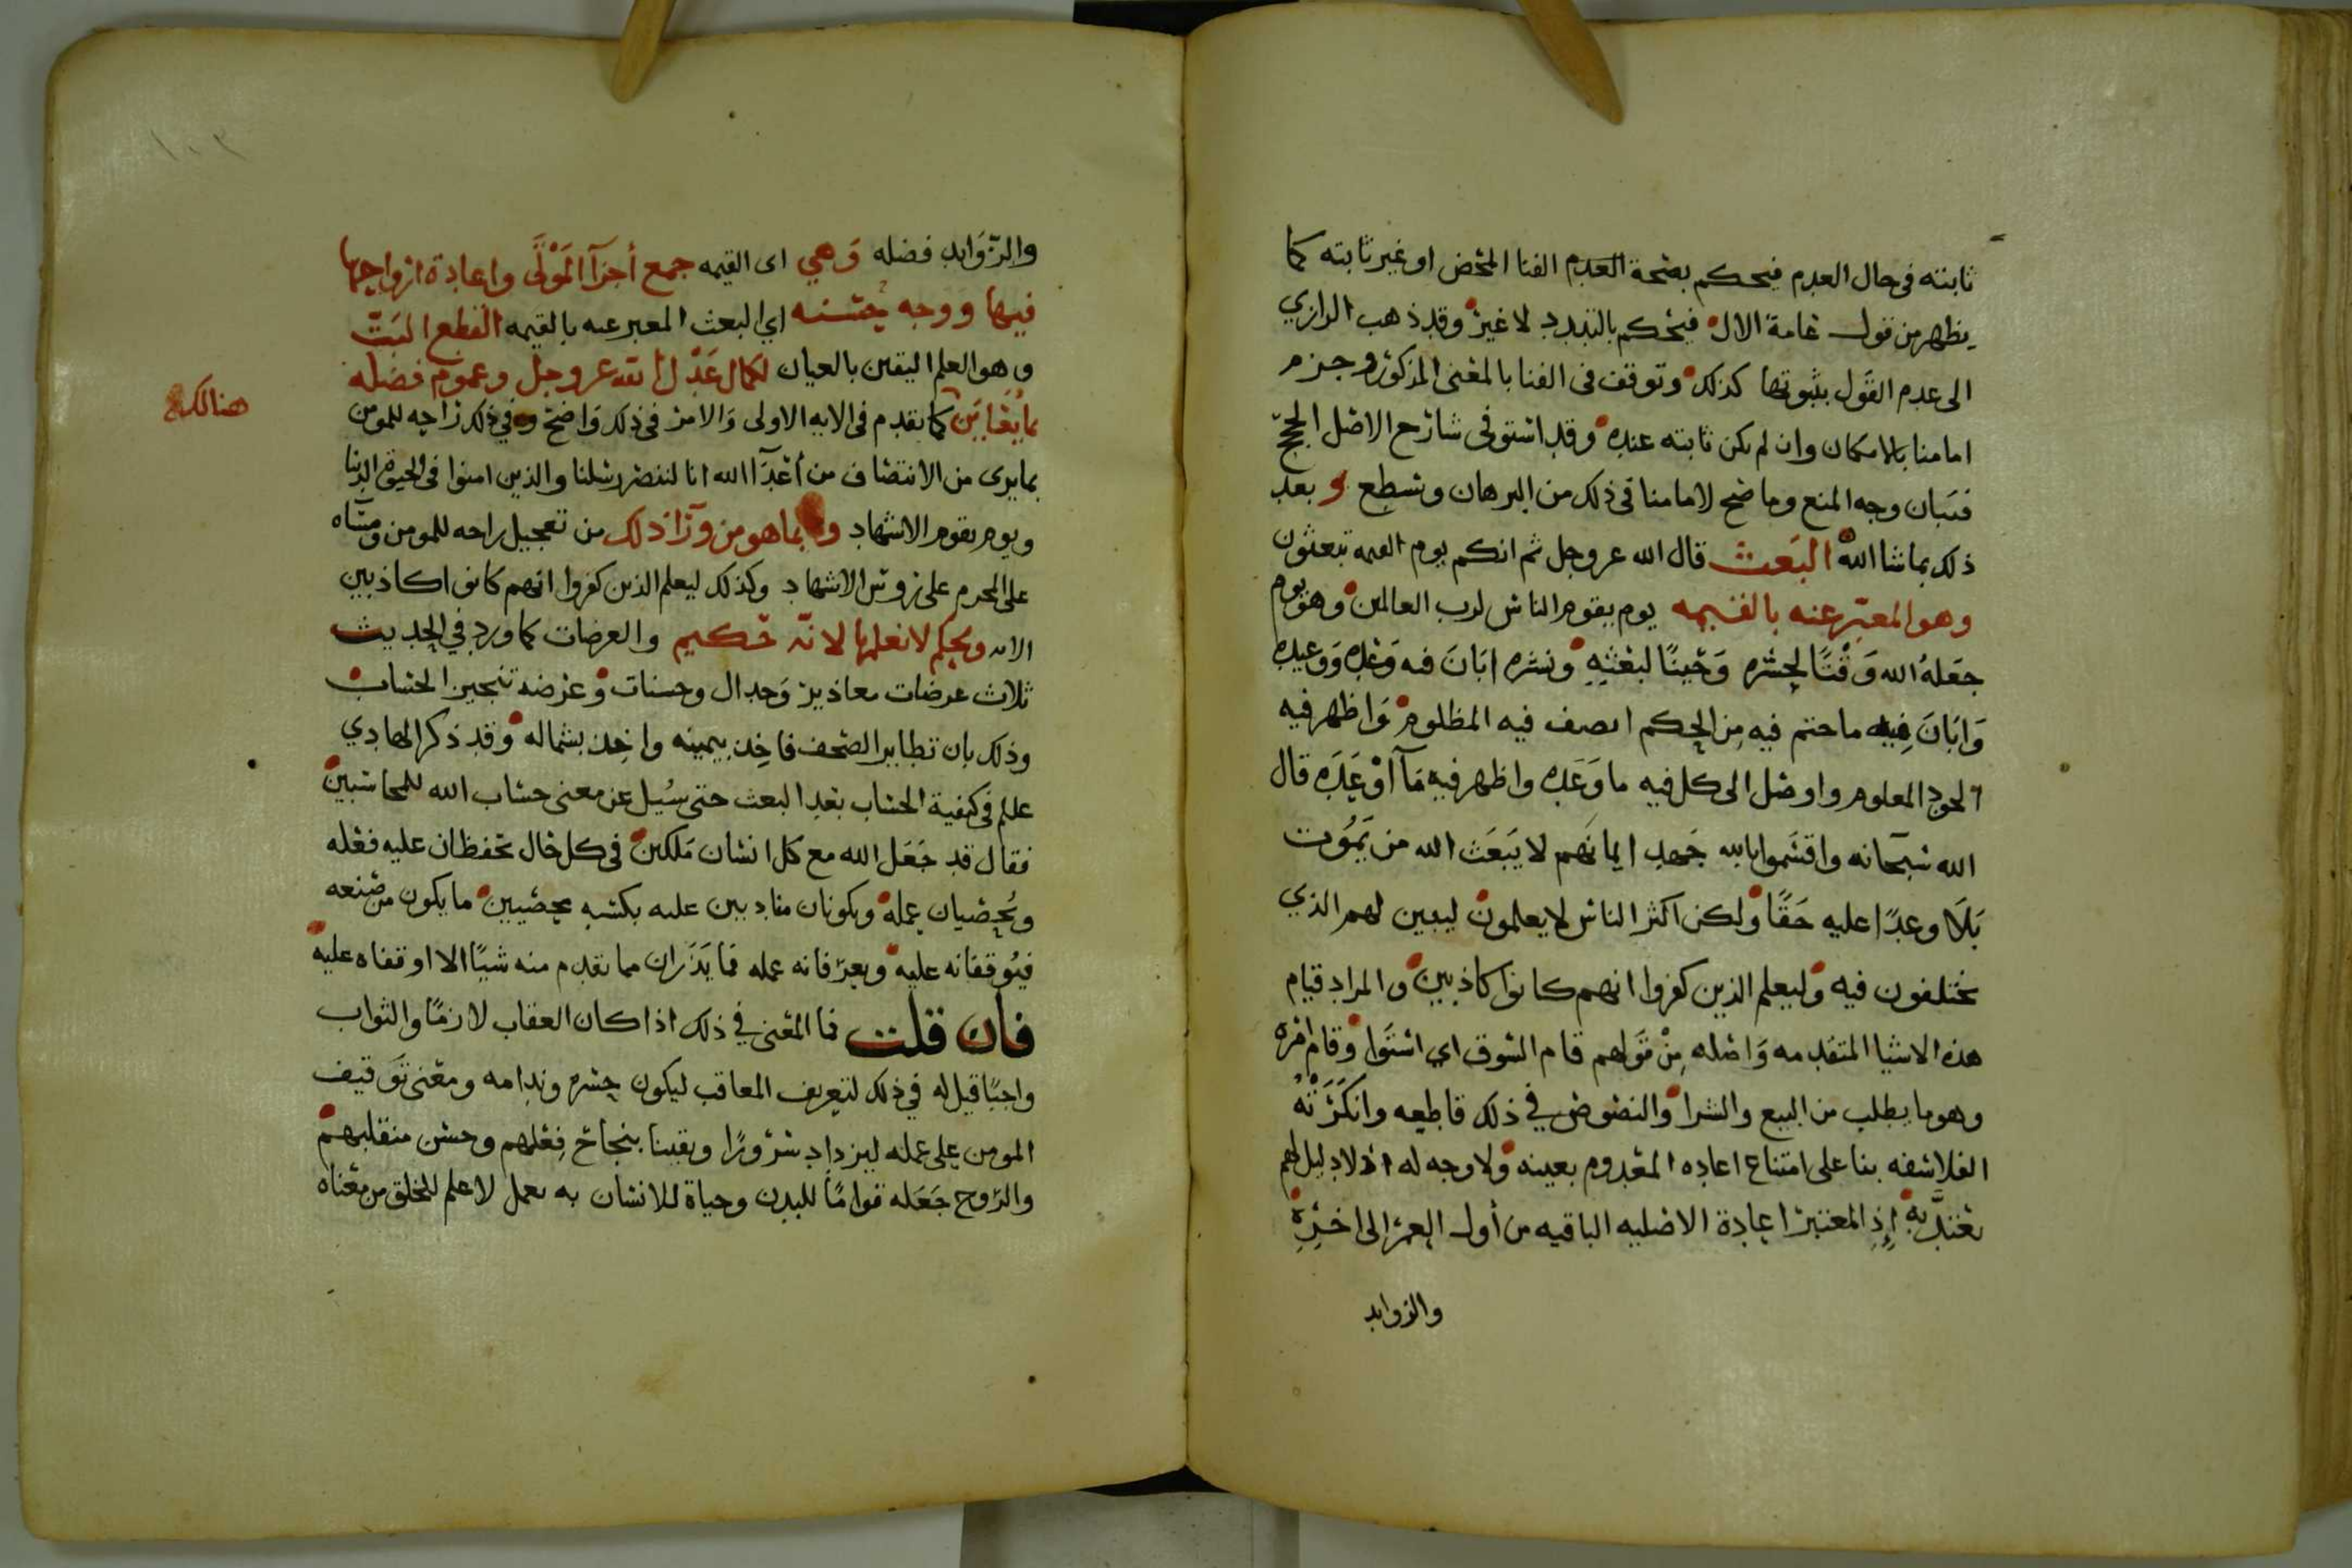 ثابته فى حال العدم فيحكم بصحة العدم الفنا المحض او غير ثابته كما
يظهر من قول عامة الال فيحكم بالتبدد لا غير وقد ذهب الرازي
الى عدم القول بثبوتها كذلك وتوقف فى الفنا بالمعنى المذكور وجزم
امامنا بالامكان وان لم يكن ثابته عنده وقد استوفى شارح الاصل الحجج
فتبان وجه المنع وما صح لامامنا فى ذلك من البرهان وتسطع و بعد
ذلك بما شا الله البعث قال الله عز وجل ثم انكم يوم القيمه تبعثون
وهو المعبر عنه بالقيمه يوم يقوم الناس لرب العالمين وهو يوم
جعله الله وقتا لحشره وحينا لبعثه ونشره ابان فيه وعده ووعيده
وابان فيه ما حتم فيه من الحكم انصف فيه المظلوم واظهر فيه
الحود المعلوم واوصل الى كل فيه ما وعده واظهر فيه مآ اوعده قال
الله سبحانه واقسموا بالله جهد ايمانهم لا يبعث الله من يموت
بلا وعدا عليه حقا ولكن اكثر الناس لا يعلمون ليبين لهم الذي
يختلفون فيه وليعلم الذين كفروا انهم كانوا كاذبين والمراد قيام
هذه الاشيا المتقدمه واصله من قولهم قام السوق اي استوا وقام امره
وهو ما يطلب من البيع والشرا والنصوص في ذلك قاطعه وانكرته
الفلاسفه بنا على امتناع اعاده المعدوم بعينه ولا وجه له اذ لا دليل لهم
يعتد به إذ المعتبر اعادة الاصليه الباقيه من أول العمر الى اخره
والزوايد
والزوايد فضله وهي اى القيمه جمع أجزآ الموتى واعادة ارواحها
فيها ووجه حسنه اي البعث المعبر عنه بالقيمه القطع البت
وهو العلم اليقين بالعيان لكمال عدل الله عز وجل وعموم فضله
هنالك
بما يعاين كما تقدم فى الايه الاولى والامر فى ذلك واضح وفي ذلك راحه للمومن
بما يرى من الانتصاف من أعدآ الله انا لننصر رسلنا والذين امنوا فى الحيوة الدنيا
ويوم يقوم الاشهاد وبما هو من ورآ ذلك من تعجيل راحه للمومن ومساه
على المجرم على رؤس الاشهاد وكذلك ليعلم الذين كفروا انهم كانوا كاذبين
الايه ولحكم لا نعلمها لانه حكيم والعرضات كما ورد في الحديث
ثلاث عرضات معاذير وجدال وحسنات وعرضه تنجيز الحساب
وذلك بان تطاير الصحف فاخذ بيمينه واخذ بشماله وقد ذكر الهادي
علم فى كيفية الحساب بعد البعث حتى سيل عن معنى حساب الله للمحاسبين
فقال قد جعل الله مع كل انسان ملكين فى كل حال يحفظان عليه فعله
ويحصيان عمله ويكونان منادبين عليه بكسبه محصيين ما يكون من صنعه
فيوقفانه عليه ويعرفانه عمله فما يذران مما تقدم منه شيا الا اوقفاه عليه
فان قلت فما المعنى في ذلك اذا كان العقاب لازما والثواب
واجبا قيل له في ذلك لتعريف المعاقب ليكون حسره وندامه ومعنى توقيف
المومن على عمله ليزداد سرورا ويقينا بنجاح فعلهم وحسن منقلبهم
والروح جعله قواما للبدن وحياة للانسان به يعمل لا علم للخلق من معناه